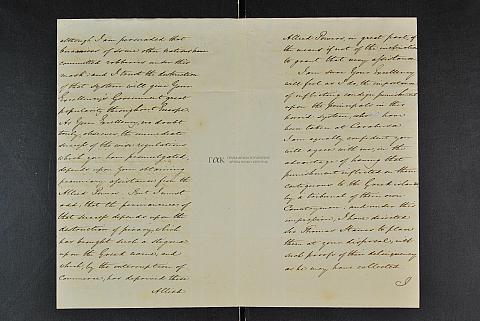 although I am persuaded that
buccaneers of some other nations have
committed robberies under this
mask: and I trust the destruction
of that system will give Your
Excellency's Government great
popularity throughout Europe.
As Your Excellency no doubt
truly observes the immediate
success of the new regulations
which you have promulgated,
depends upon your obtaining
pecuniary assistance from the
Allied Powers. But I must
add, that the permanence of
that success depends upon the
destruction of piracy, which
has brought such a stigma
upon the Greek name, and
which, by the interruption of
Commerce, has deprived those
Allied
Allied Powers, in great part, of
the means if not of the inclination
to grant that very assistance.
I am sure Your Excellency
will feel as I do, the importance
of inflicting condign punishment
upon the Principals in this
horrid system, who have
been taken at Carabusa.
I am equally confident you
will agree with me, in the
advantage of having that
punishment inflicted on them
contiguous to the Greek islands
by a tribunal of their own
Countrymen: and under this
impression, I have directed
Sir Thomas Staines to place
them at your disposal, with
such proofs of their delinquency
as he may have collected.
I
ΓΑΚ